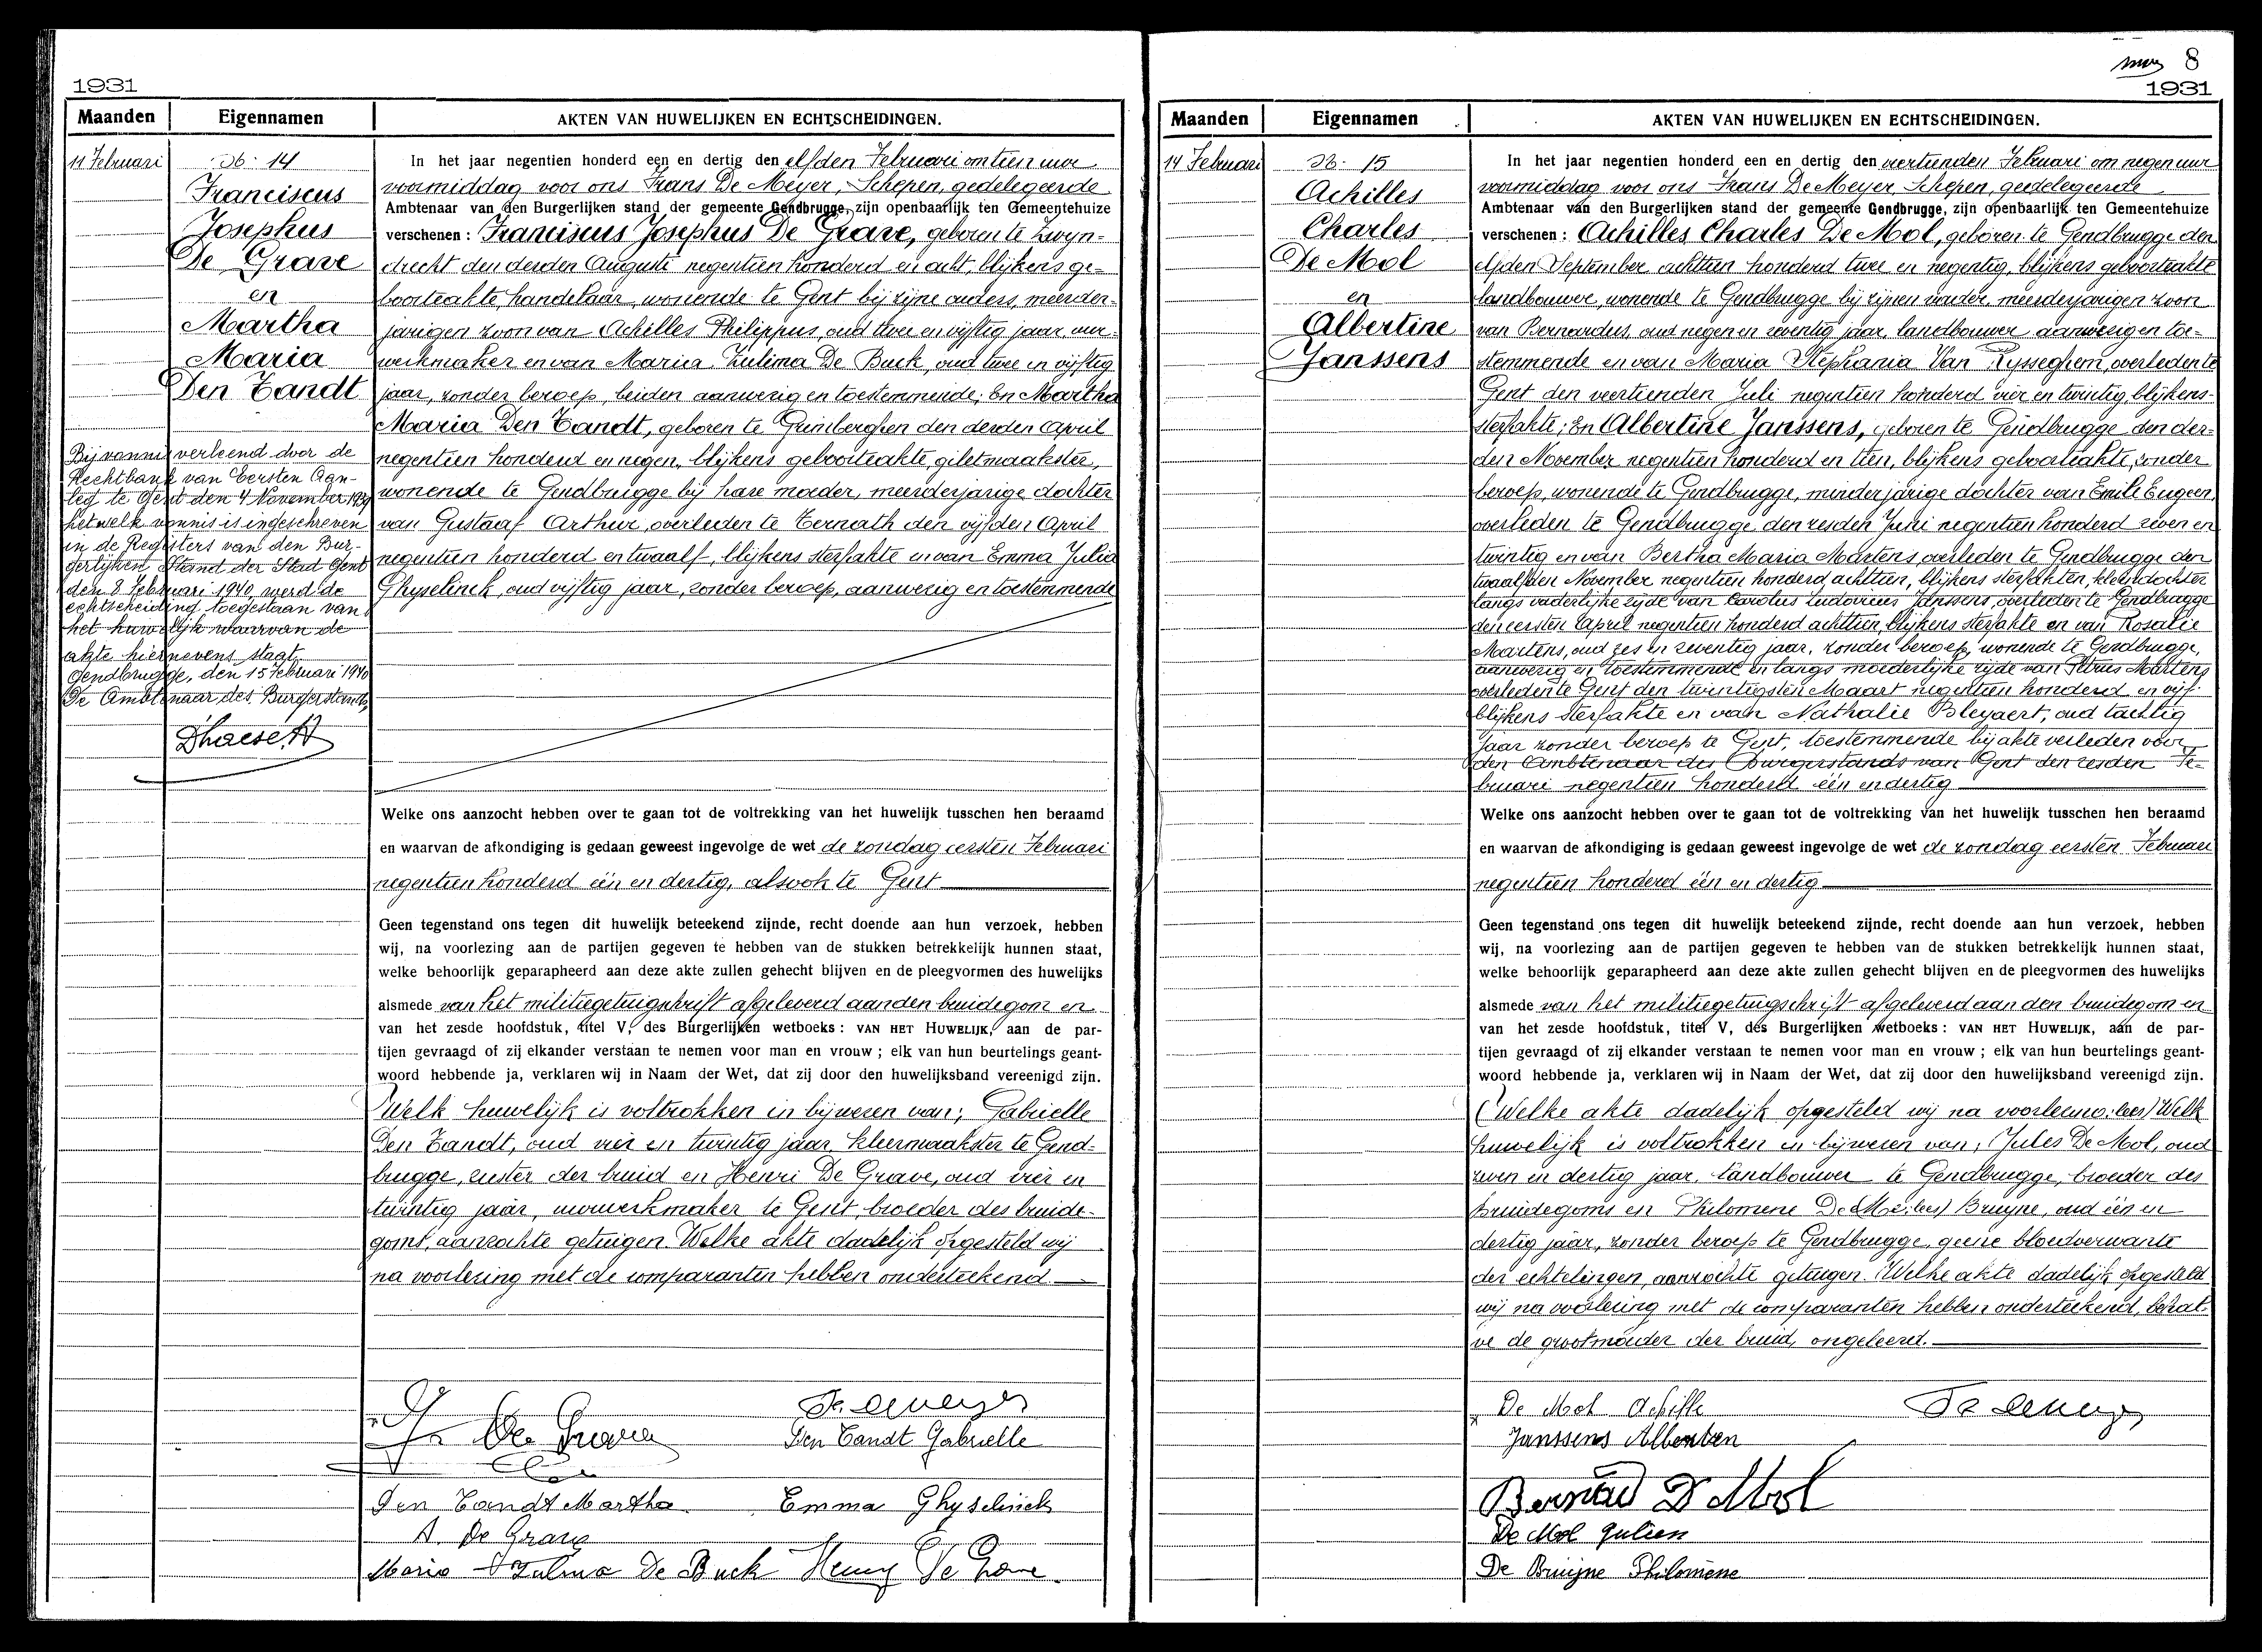 1931
Maanden
Eigennamen
AKTEN VAN HUWELIJKEN EN ECHTSCHEIDINGEN.
11 Februari
Nr. 14
Franciscus
Josephus
De Grave
en
Martha
Maria
Den Tandt
Bij vonnis verleend door de
Rechtbank van Eersten Aan-
leg te Gent den 4 November 1939
hetwelk vonnis is ingeschreven
in de Registers van den Bur-
gerlijken Stand der Stad Gent
den 8 Februari 1940, werd de
echtscheiding toegestaan van
het huwelijk waarvan de
akte hiernevens staat.
Gendbrugge, den 15 Februari 1940
De Ambtenaar des Burgerstands,
In het jaar negentien honderd een en dertig den elfden Februari om tien uur
voormiddag voor ons Frans De Meyer, Schepen, gedelegeerde
Ambtenaar van den Burgerlijken stand der gemeente Gendbrugge, zijn openbaarlijk ten Gemeentehuize
verschenen : Franciscus Josephus De Grave, geboren te Zwyn-
drecht den derden Augusti negentien honderd en acht, blijkens ge-
boorteakte, handelaar, wonende te Gent bij zijne ouders, meerder-
jarigen zoon van Achilles Philippus, oud twee en vijftig jaar, uur-
werkmaker en van Maria Zulima De Buck, oud twee en vijftig
jaar, zonder beroep, beiden aanwezig en toestemmende; En Martha
Maria Den Tandt, geboren te Grimberghen den derden April
negentien honderd en negen, blijkens geboorteakte, giletmaakster,
wonende te Gendbrugge bij hare moeder, meerderjarige dochter
van Gustaaf Arthur, overleden te Ternath den vijfden April
negentien honderd en twaalf, blijkens sterfakte en van Emma Julia
Ghyselinck, oud vijftig jaar, zonder beroep, aanwezig en toestemmende
Welke ons aanzocht hebben over te gaan tot de voltrekking van het huwelijk tusschen hen beraamd
en waarvan de afkondiging is gedaan geweest ingevolge de wet de zondag eersten Februari
negentien honderd één en dertig, alsook te Gent
Geen tegenstand ons tegen dit huwelijk beteekend zijnde, recht doende aan hun verzoek, hebben
wij, na voorlezing aan de partijen gegeven te hebben van de stukken betrekkelijk hunnen staat,
welke behoorlijk geparapheerd aan deze akte zullen gehecht blijven en de pleegvormen des huwelijks
alsmede van het militiegetuigschrift afgeleverd aan den bruidegom en
van het zesde hoofdstuk, titel V, des Burgerlijken wetboeks : VAN HET HUWELIJK, aan de par-
tijen gevraagd of zij elkander verstaan te nemen voor man en vrouw ; elk van hun beurtelings geant-
woord hebbende ja, verklaren wij in Naam der Wet, dat zij door den huwelijksband vereenigd zijn.
Welk huwelijk is voltrokken in bijwezen van; Gabrielle
Den Tandt, oud vier en twintig jaar, kleermaakster te Gend-
brugge, zuster der bruid en Henri De Grave, oud vier en
twintig jaar, uurwerkmaker te Gent, broeder des bruide-
goms, aanzochte getuigen. Welke akte dadelijk opgesteld wij
na voorlezing met de comparanten hebben onderteekend.
De Grave
Den Tandt Gabrielle
Den Tandt Martha
Emma Ghyselinck
A. De Grave
Maria Zulma De Buck
Henry De Grave
8
1931
Maanden
Eigennamen
AKTEN VAN HUWELIJKEN EN ECHTSCHEIDINGEN.
14 Februari
Nr. 15
Achilles
Charles
De Mol
en
Albertine
Janssens
In het jaar negentien honderd een en dertig den veertienden Februari om negen uur
voormiddag voor ons Frans De Meyer, Schepen, gedelegeerde
Ambtenaar van den Burgerlijken stand der gemeente Gendbrugge, zijn openbaarlijk ten Gemeentehuize
verschenen : Achilles Charles De Mol, geboren te Gendbrugge den
elfden September achttien honderd twee en negentig, blijkens geboorteakte
landbouwer, wonende te Gendbrugge bij zijnen vader, meerderjarigen zoon
van Bernardus, oud negen en zeventig jaar, landbouwer aanwezig en toe-
stemmende en van Maria Stephania Van Rysseghem, overleden te
Gent den veertienden Juli negentien honderd vier en twintig, blijkens
sterfakte; En Albertine Janssens, geboren te Gendbrugge den der-
den November negentien honderd en tien, blijkens geboorteakte, zonder
beroep, wonende te Gendbrugge, minderjarige dochter van Emile Eugeen,
overleden te Gendbrugge den zesden Juni negentien honderd zeven en
twintig en van Bertha Maria Martens, overleden te Gendbrugge den
twaalfden November negentien honderd achttien, blijkens sterfakten, kleindochter
langs vaderlijke zijde van Carolus Ludovicus Janssens, overleden te Gendbrugge
den eersten April negentien honderd achttien, blijkens sterfakte en van Rosalie
Martens, oud zes en zeventig jaar, zonder beroep, wonende te Gendbrugge,
aanwezig en toestemmende en langs moederlijke zijde van Petrus Martens
overleden te Gent den twintigsten Maart negentien honderd en vijf
blijkens sterfakte en van Nathalie Bleyaert, oud tachtig
jaar zonder beroep te Gent, toestemmende bij akte verleden voor
den Ambtenaar des Burgerstands van Gent den zesden Fe-
bruari negentien honderd één en dertig
Welke ons aanzocht hebben over te gaan tot de voltrekking van het huwelijk tusschen hen beraamd
en waarvan de afkondiging is gedaan geweest ingevolge de wet de zondag eersten Februari
negentien honderd één en dertig
Geen tegenstand ons tegen dit huwelijk beteekend zijnde, recht doende aan hun verzoek, hebben
wij, na voorlezing aan de partijen gegeven te hebben van de stukken betrekkelijk hunnen staat,
welke behoorlijk geparapheerd aan deze akte zullen gehecht blijven en de pleegvormen des huwelijks
alsmede van het militiegetuigschrift afgeleverd aan den bruidegom en
van het zesde hoofdstuk, titel V, des Burgerlijken wetboeks : VAN HET HUWELIJK, aan de par-
tijen gevraagd of zij elkander verstaan te nemen voor man en vrouw ; elk van hun beurtelings geant-
woord hebbende ja, verklaren wij in Naam der Wet, dat zij door den huwelijksband vereenigd zijn.
(Welke akte dadelijk opgesteld wij na voorlezing: lees) Welk
huwelijk is voltrokken in bijwezen van; Jules De Mol, oud
zeven en dertig jaar, landbouwer te Gendbrugge, broeder des
bruidegoms en Philomene De (Mo: lees) Bruyne, oud één en
dertig jaar, zonder beroep te Gendbrugge, geene bloedverwante
der echtelingen, aanzochte getuigen. Welke akte dadelijk opgesteld
wij na voorlezing met de comparanten hebben onderteekend, behal-
ve de grootmoeder der bruid, ongeleerd.
De Mol Achille
Janssens Alberten
Bernard D Mol
De Mol Julien
De Bruijne Philomène